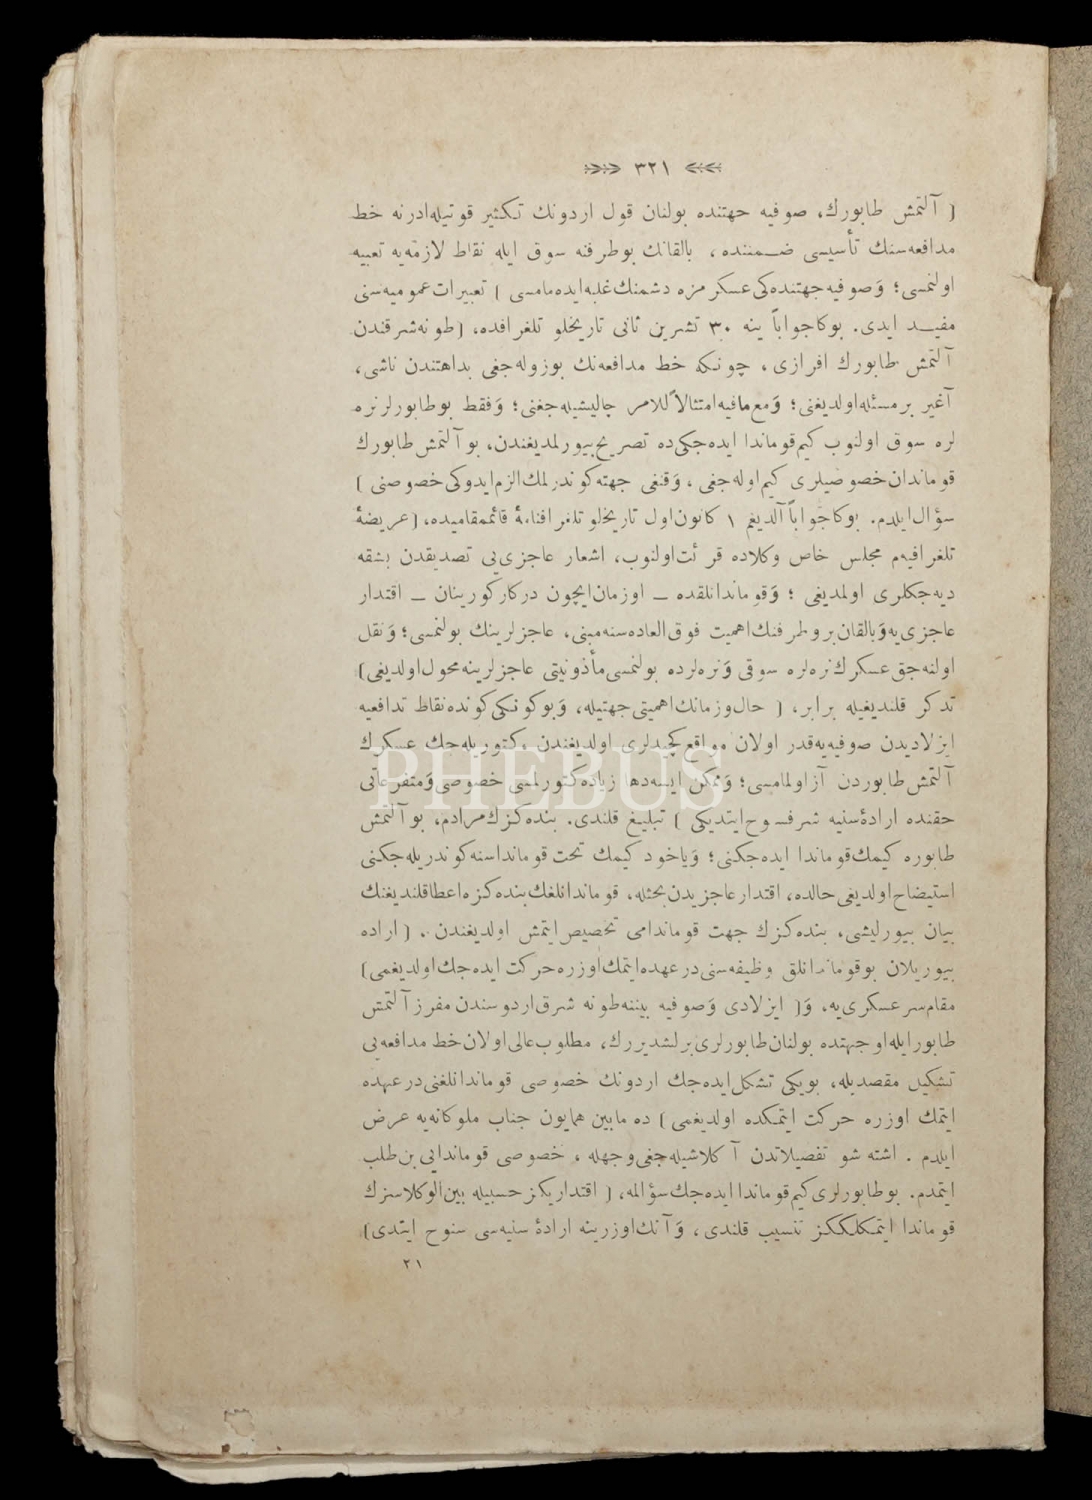 ٣٢١
( آلتمش طابورك، صوفيه جهتنده بولنان قول اردونك تكثير قوتيله ادرنه خط
مدافعه‌سنك تأسيسى ضمننده ، بالقانك بوطرفنه سوق ايله نقاط لازمه‌يه تعبيه
اولنمسى؛ وَصوفيه جهتنده‌كى عسكرمزه دشمنك غلبه ايده‌مامسى ) تعبيرات عموميه‌سنى
مفيد ايدى. بوكا جواباً ينه ٣٠ تشرين ثانى تاريخلو تلغرافده، (طونه شرقندن
آلتمش طابورك افرازى ، چونكه خط مدافعه‌نك بوزوله‌جغى بداهتندن ناشى،
آغير برمسئله اولديغنى؛ وَمع‌مافيه امتثالاً للامر چاليشيله‌جغنى؛ وَفقط بوطابورلر نره
لره سوق اولنوب كيم قوماندا ايده‌جكى‌ده تصريح بيورلمديغندن، بو آلتمش طابورك
قوماندان خصوصيلرى كيم اوله‌جغى ، وَقنغى جهته كوندرلمك الزم ايدوكى خصوصنى )
سؤال ايلدم. بوكا جواباً آلديغم ١ كانون اول تاريخلو تلغرافنامۀ قائممقاميده، (عريضۀ
تلغرافيه‌م مجلس خاص وكلاده قرائت اولنوب، اشعار عاجزى‌يى تصديقدن بشقه
ديه‌جكلرى اولمديغى ؛ وَقوماندانلقده ــ اوزمان ايچون دركار كورينان ــ اقتدار
عاجزى‌يه وَبالقان بروطرفنك اهميت فوق‌العاده‌سنه مبنى، عاجزلرينك بولنمسى؛ وَنقل
اولنه‌جق عسكرك نره‌لره سوقى وَنره‌لرده بولنمسى مأذونيتى عاجزلرينه محول اولديغى)
تذكر قلنديغيله برابر، ( حال وزمانك اهميتى جهتيله، وَبوكونكى كونده نقاط تدافعيه
ايزلاديدن صوفيه‌يه قدر اولان مواقع كچيدلرى اولديغندن كتوريله‌جك عسكرك
آلتمش طابوردن آز اولمامسى؛ وَممكن ايسه‌دها زياده كتورلمسى خصوصى وَمتفرعاتى
حقنده ارادۀ سنيه شرفسوح ايتديكى ) تبليغ قلندى. بنده‌كزك مرادم، بو آلتمش
طابوره كيمك قوماندا ايده‌جكنى؛ وَياخود كيمك تحت قومانداسنه كوندريله‌جكنى
استيضاح اولديغى حالده، اقتدار عاجزيدن بحثله، قوماندانلغك بنده‌كزه اعطا قلنديغنك
بيان بيورليشى، بنده‌كزك جهت قوماندامى تخصيص ايتمش اولديغندن ، ( اراده
بيوريلان بوقوماندانلق وظيفه‌سنى درعهده ايتمك اوزره حركت ايده‌جك اولديغمى)
مقام سرعسكرى‌يه، وَ( ايزلادى وَصوفيه بيننه طونه شرق اردوسندن مفرز آلتمش
طابور ايله اوجهتده بولنان طابورلرى برلشديررك، مطلوب عالى اولان خط مدافعه‌يى
تشكيل مقصديله، بويكى تشكل ايده‌جك اردونك خصوصى قوماندانلغنى درعهده
ايتمك اوزره حركت ايتمكده اولديغمى ) ده مابين همايون جناب ملوكانه‌يه عرض
ايلدم . اشته شو تفصيلاتدن آكلاشيله‌جغى وجهله ، خصوصى قوماندايى بن طلب
ايتمدم. بوطابورلرى كيم قوماندا ايده‌جك سؤالمه، ( اقتداريكز حسبيله بين‌الوكلا سزك
قوماندا ايتمكلككز تنسيب قلندى، وَآنك اوزرينه ارادۀ سنيه‌سى سنوح ايتدى)
٢١
PHEBUS